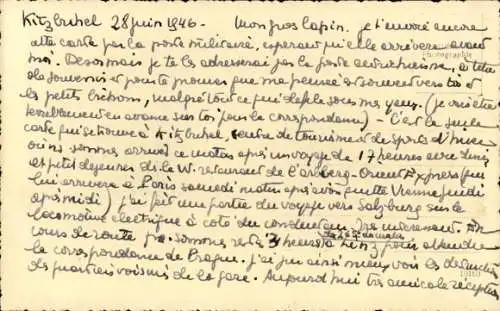 Kitzbuhel 28 juin 1946 - Mon gros lapin. je t'envoie encore
cette carte par la poste militaire, espérant qu'elle arrivera avant
moi. Desormais je te les adresserai par la poste autrichienne, à titre
de souvenir et pour te prouver que ma pensée est souvent vers toi et
les petits, malgré tout ce qui defile sous mes yeux. (je vais être
terriblement en avance sur toi pour la correspondance) - C'est la seule
carte qui se trouve à Kitzbuhel, centre de tourisme et de sports d'hiver
où ns sommes arrivés ce matin après un voyage de 17 heures avec diner
et petit dejeuner ds le W. restaurant de l'Arlberg-Orient Express (qui
lui arrivera à Paris samedi matin après avoir quitté Vienne jeudi
après midi) j'ai fait une partie du voyage vers Salzburg sur la
locomotive electrique à coté du conducteur. Très interessant. En
cours de route ns sommes restés 3 heures à Linz pour attendre
la correspondance de Prague. j'ai pu ainsi mieux voir les
des quartiers voisins de la gare. Aujourd'hui très amicale réception